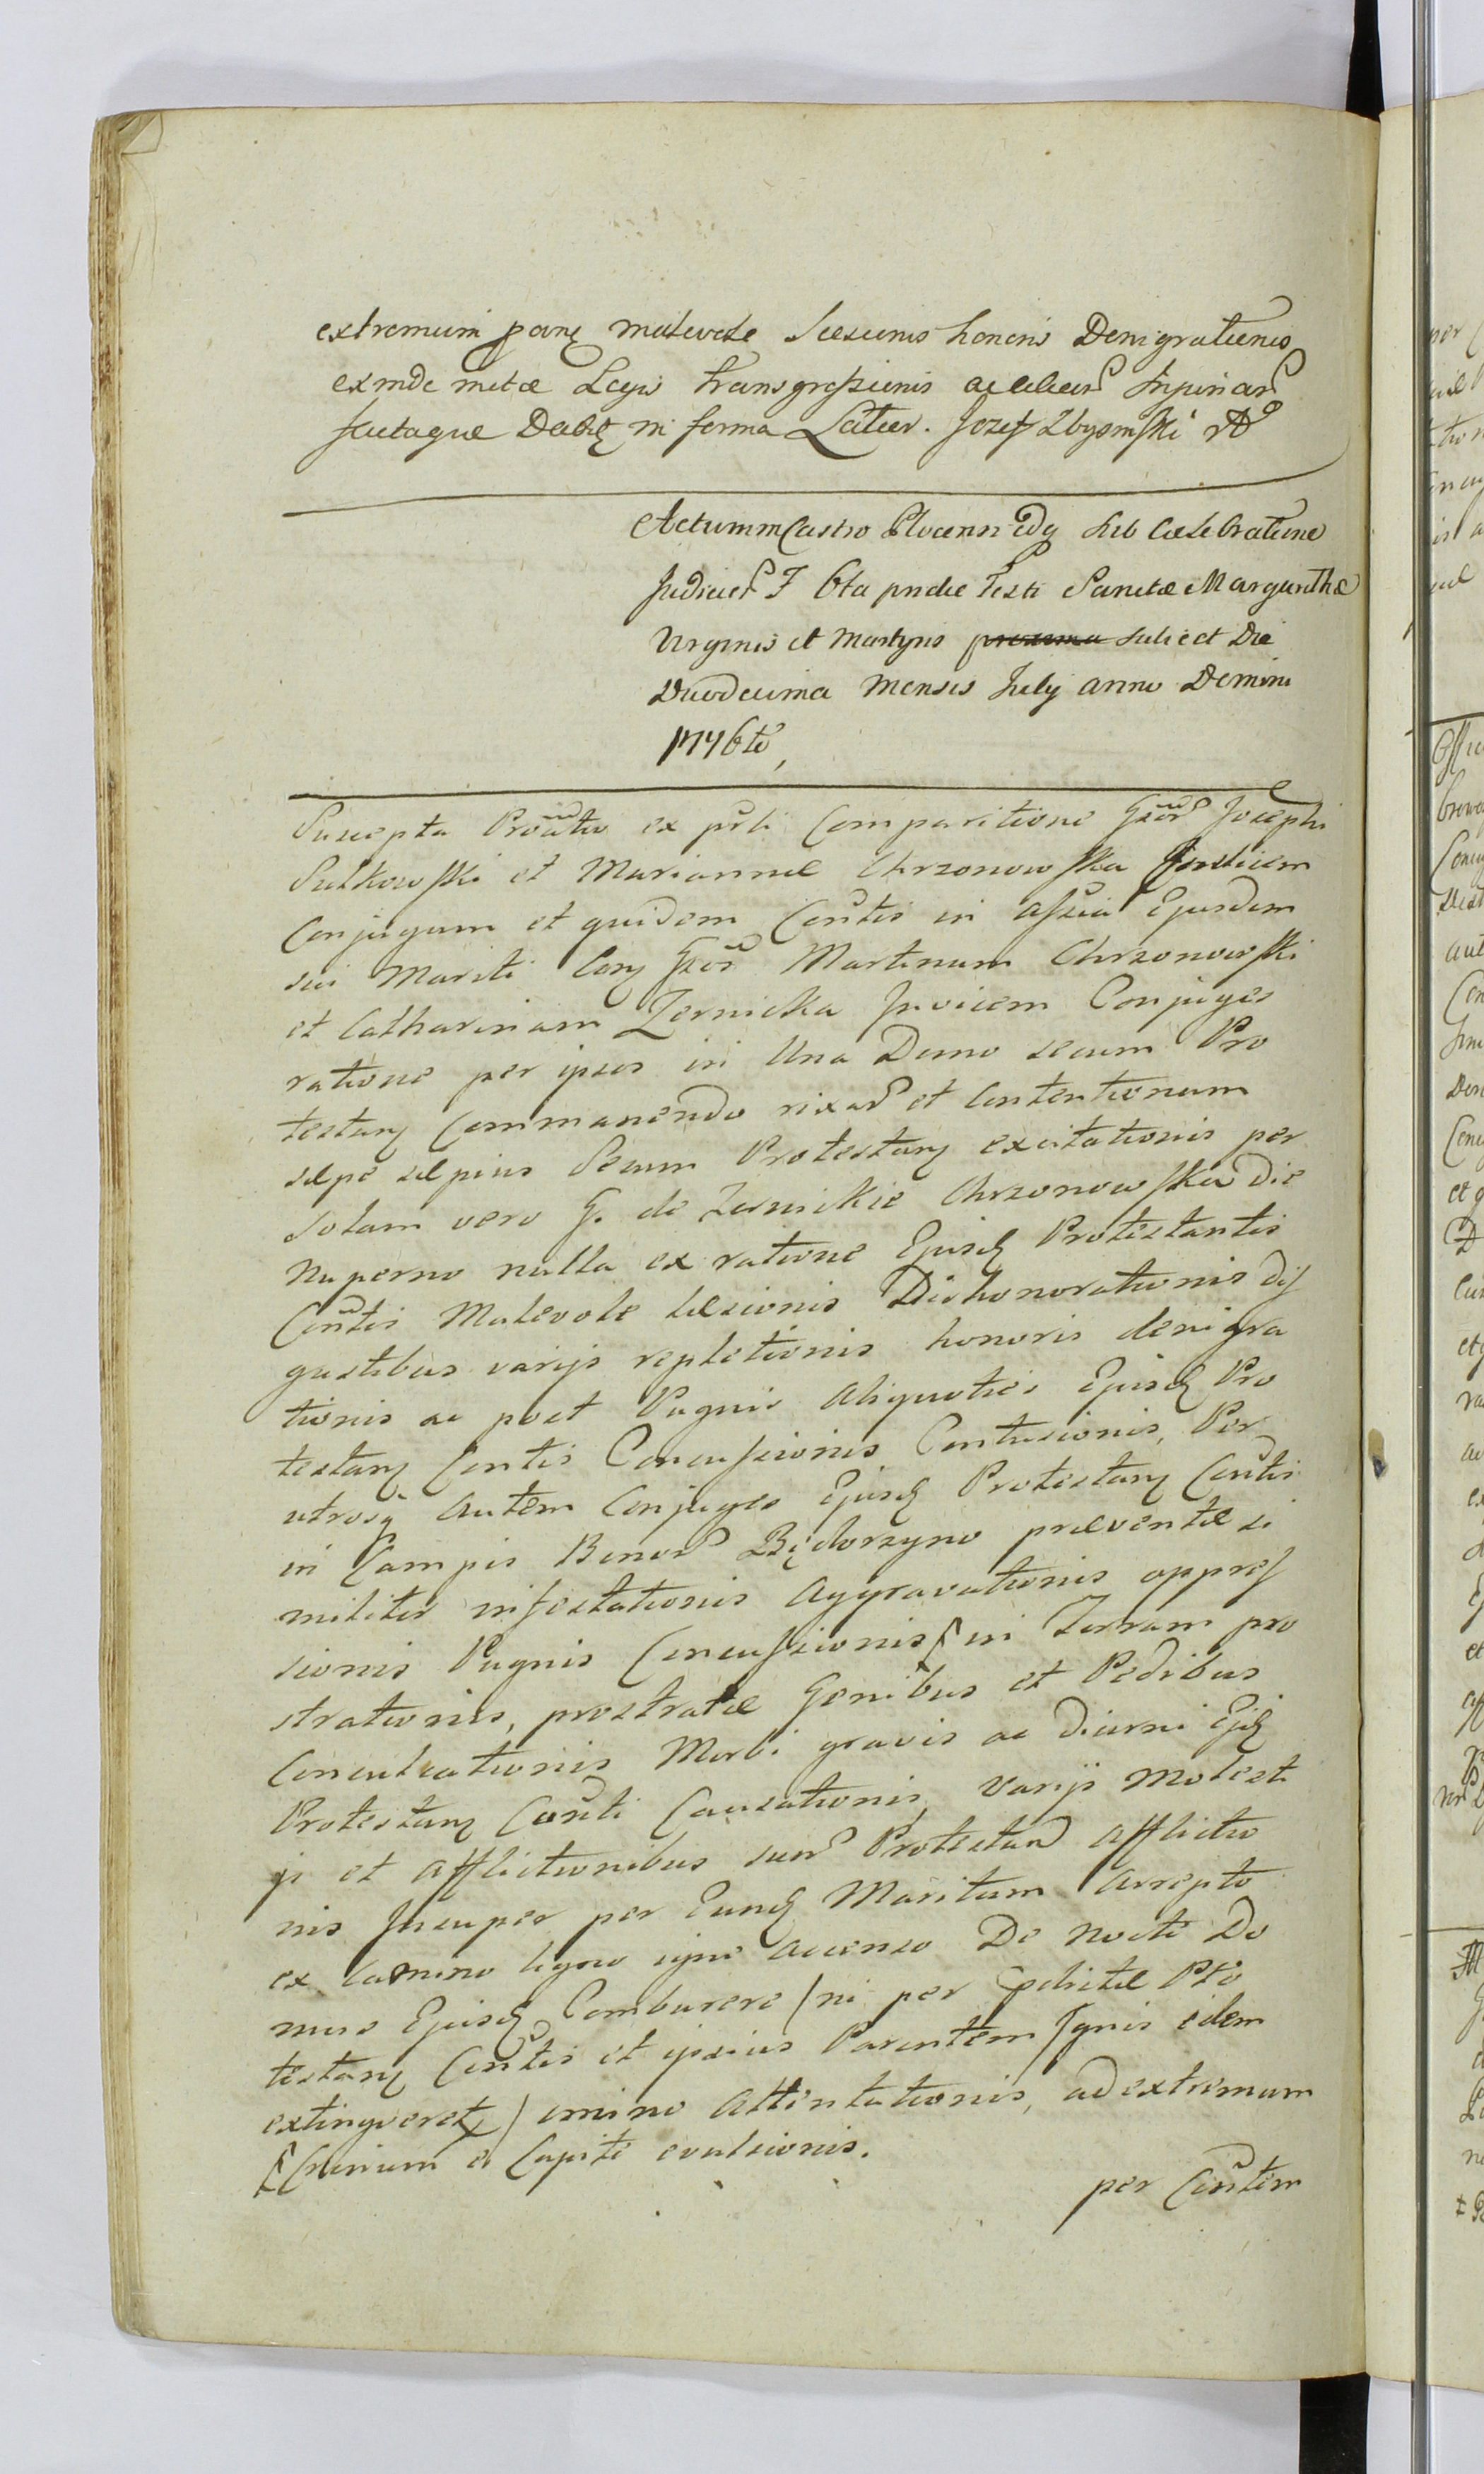 extremum malevole Laesionis honoris Denigrationis
exinde metae Legis transgressionis
factaque in forma Latior. Jozef Zbyomski
Actum in Castro Plocensi sub Caelebratione
Judicior 6ta pridie Festi Sanctae Margarithae
Virginis et Martyris proxima scilicet Die
Duodecima Mensis July anno Domini
1776to,
Suscepta ex Comparitione Gsor Josephi
Sulkowski et Mariannae Chrzonowska Invicem
Conjugum et quidem Contis in Asscia Ejusdem
sui Mariti Cong Gsos Martinum Chrzonowski
et Catharinam Zernicka Invicem Conjuges
ratione per ipsos in Una Domo secum Pro
testang Commanendo rixar et Contentionum
saepe saepius Secum Protestang excitationis per
solam vero G. de Zernickie Chrzonowska die
nuperno nulla ex ratione Ejusd Protestantis
Contis Malevole laesionis Dishonorationis dis
gustibus varijs repletionis honoris denigra
tionis ac post Pugnis Aliquoties Ejusd Pro
testang Contis Concussionis Contusionis, Per
utrosq autem Conjuges Ejusd Protestang Contis
in Campis Bonor Będorzyno praeventae si
militer infestationis Aggravationis oppres
sionis Pugnis Concussionis in Terram pro
strationis, prostratae Genibus et Pedibus
Conculcationis Morbi gravis ac diurni Ejd
Protestang Conti Causationis, Varijs Molest
js et Afflictionibus suor Protestan Afflictio
nis Insuper per Eund Maritum Arrepto
ex Camino ligno igne Accenso De Nocte Do
mus Ejusd Comburere / ni per Pro
testang Contis et ipsius Parentem Ignis idem
extingveret / omino Attentationis, ad extremum
Crinium e Capite evulsionis.
per Contem